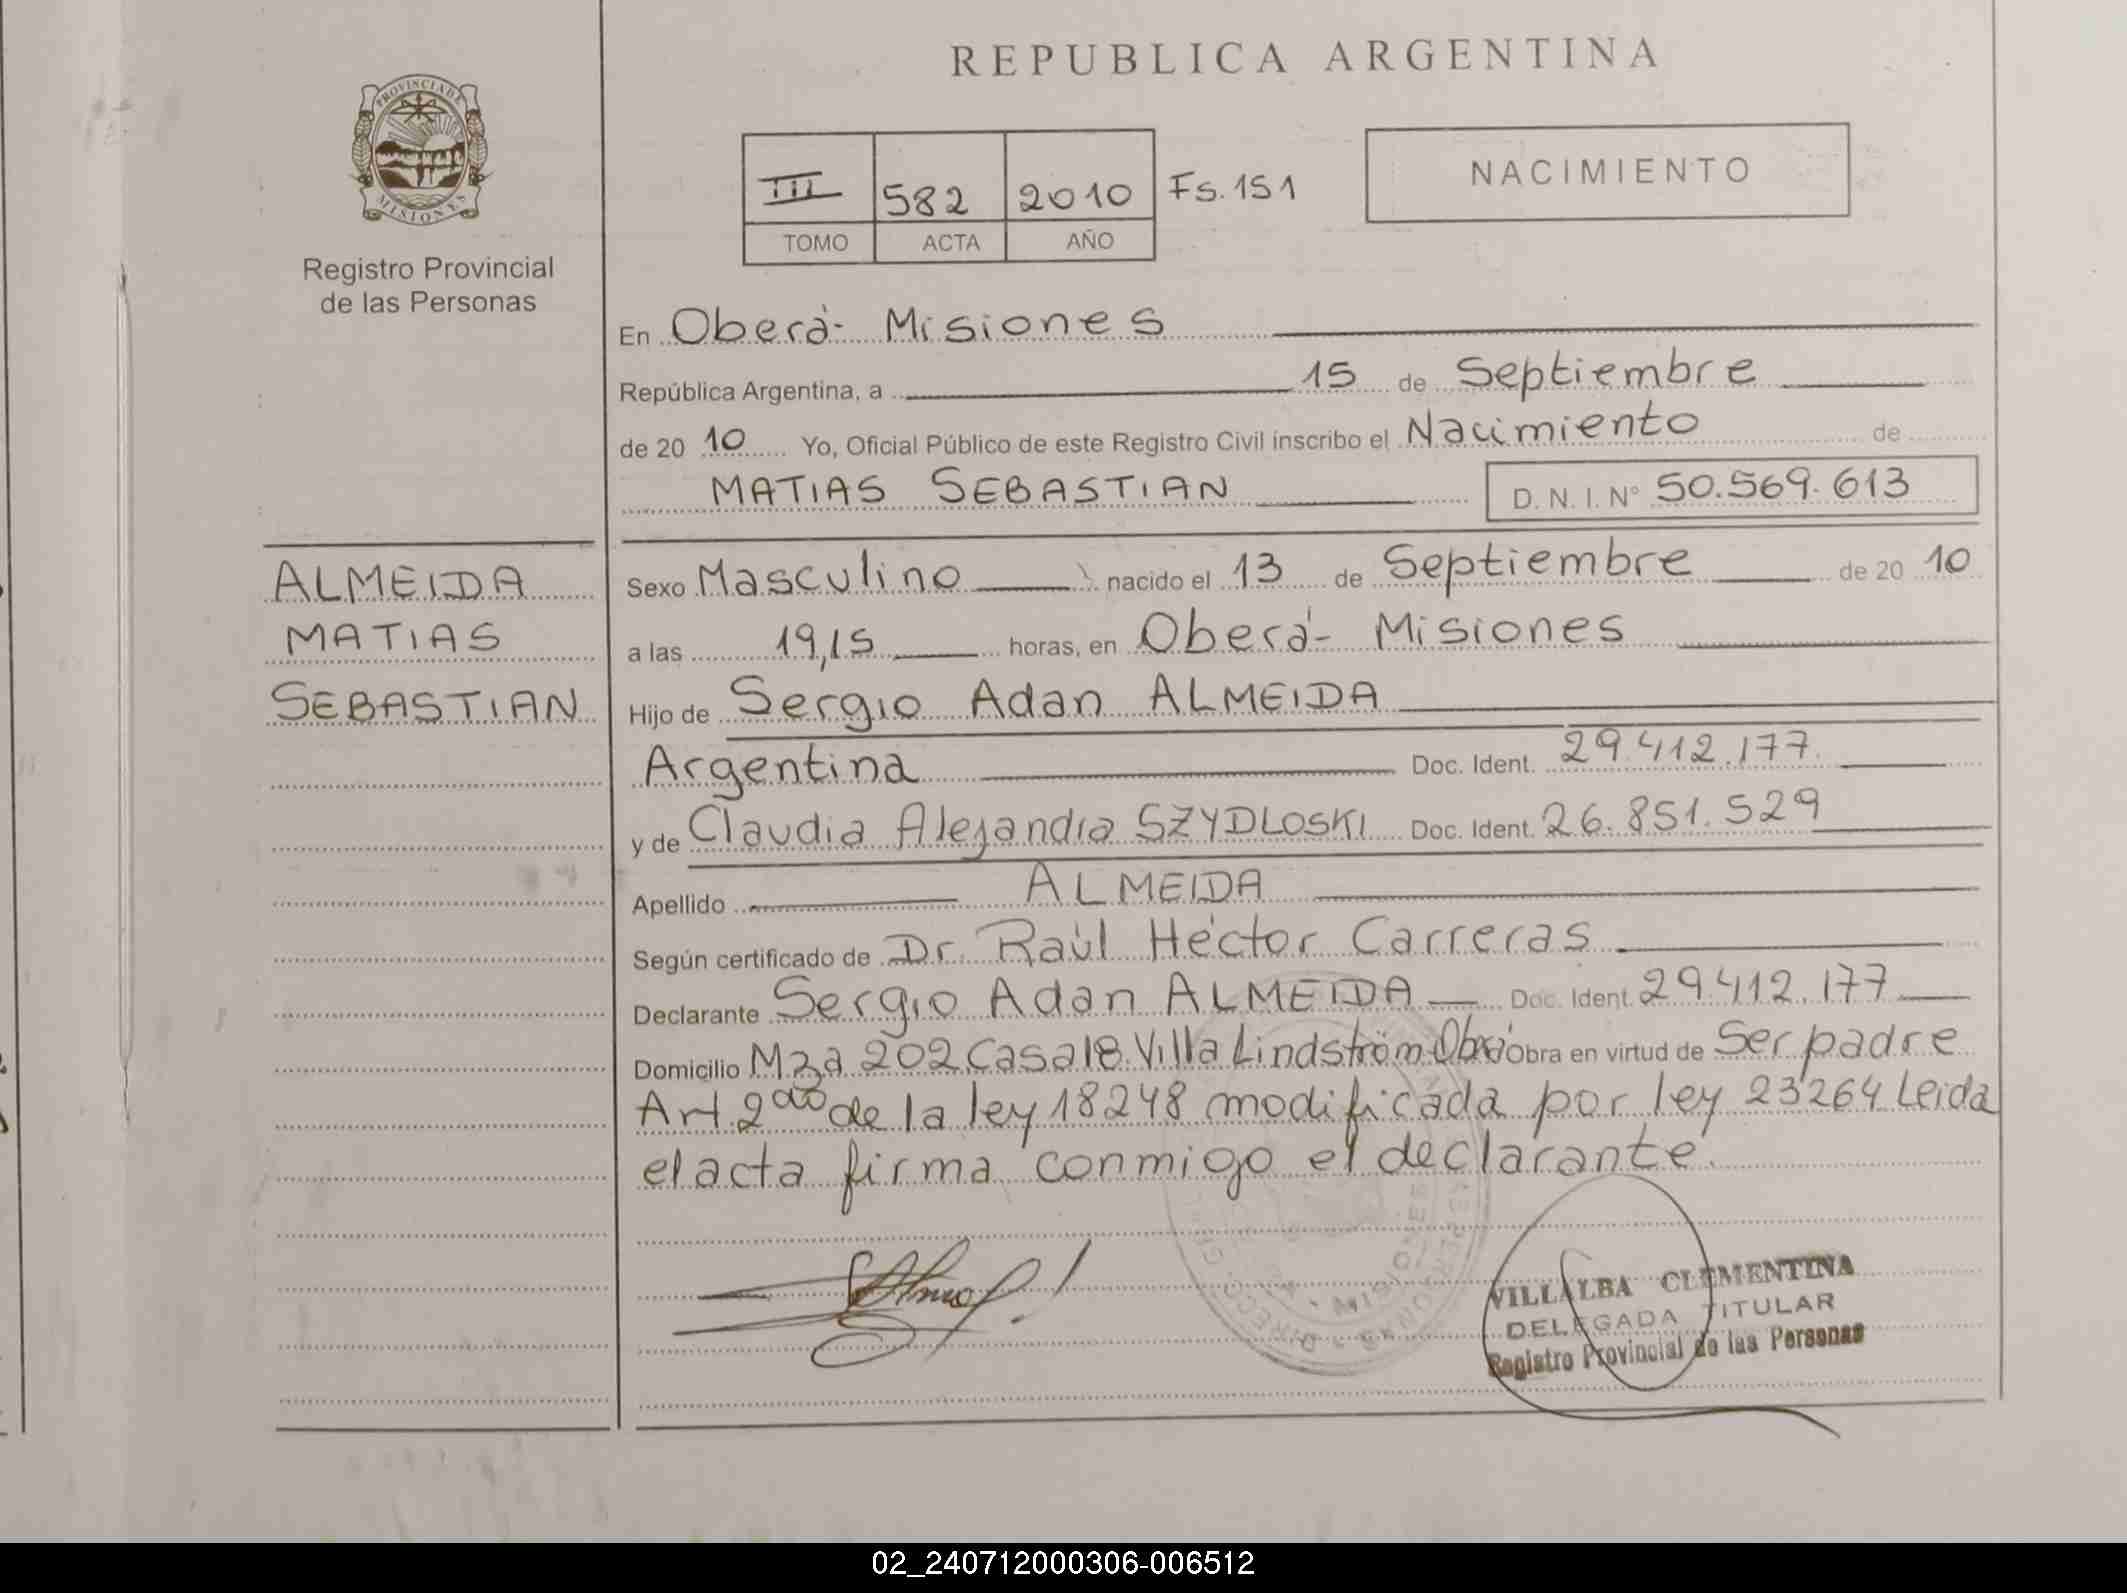 REPUBLICA ARGENTINA
PROVINCIA DE
MISIONES
Registro Provincial
de las Personas
III 582 2010 Fs. 151
TOMO ACTA AÑO
NACIMIENTO
En Oberá- Misiones
República Argentina, a 15 de Septiembre
de 20 10 Yo, Oficial Público de este Registro Civil inscribo el Nacimiento de
MATIAS SEBASTIAN D. N. I. N° 50.569.613
ALMEIDA
MATIAS
SEBASTIAN
Sexo Masculino nacido el 13 de Septiembre de 20 10
a las 19,15 horas, en Oberá- Misiones
Hijo de Sergio Adan ALMEIDA
Argentina Doc. Ident. 29.412.177.
y de Claudia Alejandra SZYDLOSKI Doc. Ident. 26.851.529
Apellido ALMEIDA
Según certificado de Dr. Raúl Héctor Carreras
Declarante Sergio Adan ALMEIDA Doc. Ident. 29.412.177
Domicilio Mza 202 Casa 18 Villa Lindström Obra en virtud de Ser padre
Art 2do de la ley 18248 modificada por ley 23264 Leida
el acta firma conmigo el declarante.
VILLALBA CLEMENTINA
DELEGADA TITULAR
Registro Provincial de las Personas
02_240712000306-006512